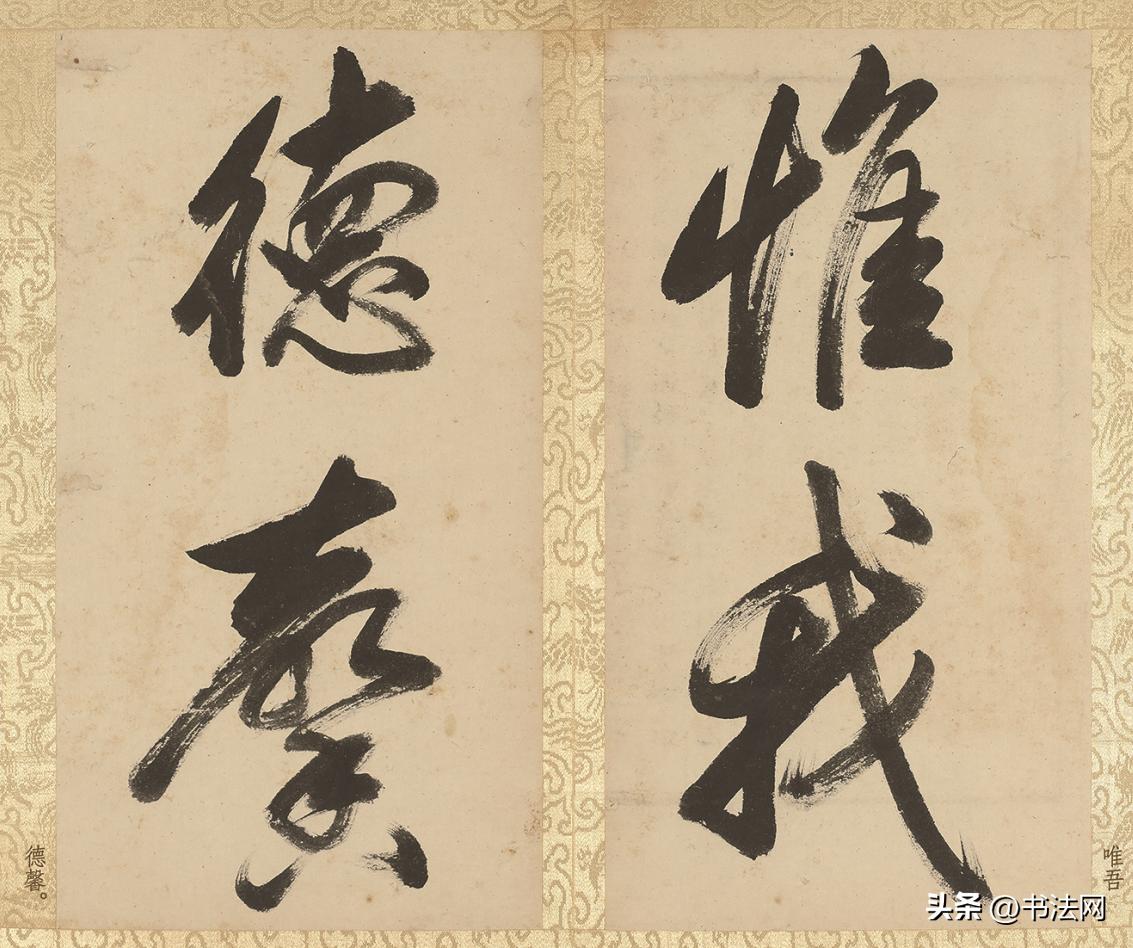 惟我
德馨
唯吾
德馨。
头条 @书法网